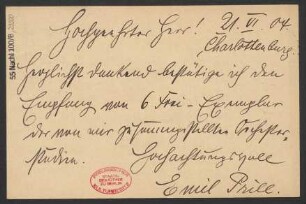 Hochgeehrter Herr! 21. VI 04.
Charlottenburg.
Herzlichst dankend bestätige ich den
Empfang von 6 Frei-Exemplar
der von mir zusammengestellten Orchester-
studien. Hochachtungsvoll
Emil Prill.
55 Nachl. 100/B